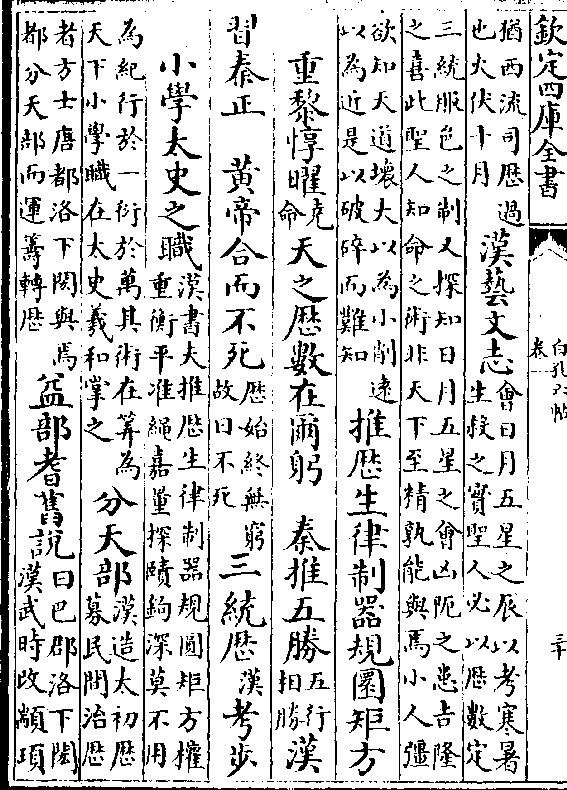 欽定四庫全書
白孔六帖
卷一
三十
猶西流司歷過
也火伏十月
漢藝文志
會日月五星之辰以考寒暑
生殺之實聖人必以歷數定
三統服色之制又探知日月五星之會凶阨之患吉隆
之喜此聖人知命之術非天下至精孰能與焉小人彊
欲知天道壞大以為小削遠
以為近是以破碎而難知
推歷生律制器規圜矩方
重黎惇曜
堯
命
天之歷數在爾躬 秦推五勝
五行
相勝
漢
習秦正 黃帝合而不死
歷始終無窮
故曰不死
三統歷
漢
考步
小學太史之職
漢書夫推歷生律制器規圓矩方權
重衡平准繩嘉量探賾鉤深莫不用
為紀行於一衍於萬其術在筭為
天下小學職在太史羲和掌之
分天部
漢造太初歷
募民間治歷
者方士唐都洛下閎與焉
都分天部而運籌轉歷
益部耆舊說
曰巴郡洛下閎
漢武時改顓頊